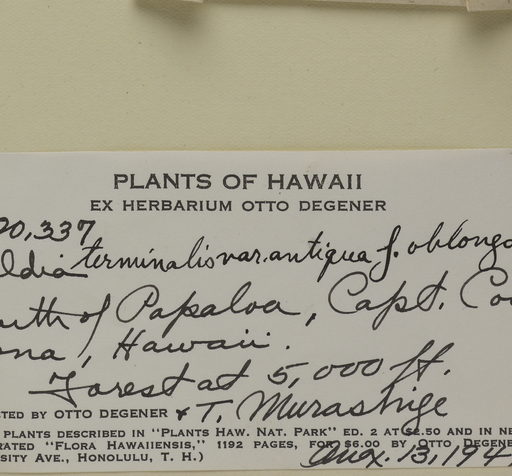 PLANTS OF HAWAII
EX HERBARIUM OTTO DEGENER
20,337
ldia terminalis var. antiqua f. oblonga
uth of Papaloa, Capt. Coo
ona, Hawaii.
Forest at 5,000 ft.
TED BY OTTO DEGENER & T. Murashige
PLANTS DESCRIBED IN "PLANTS HAW. NAT. PARK" ED. 2 AT $2.50 AND IN NE
RATED "FLORA HAWAIIENSIS," 1192 PAGES, FOR $6.00 BY OTTO DEGENE
SITY AVE., HONOLULU, T. H.) Aug. 13, 194